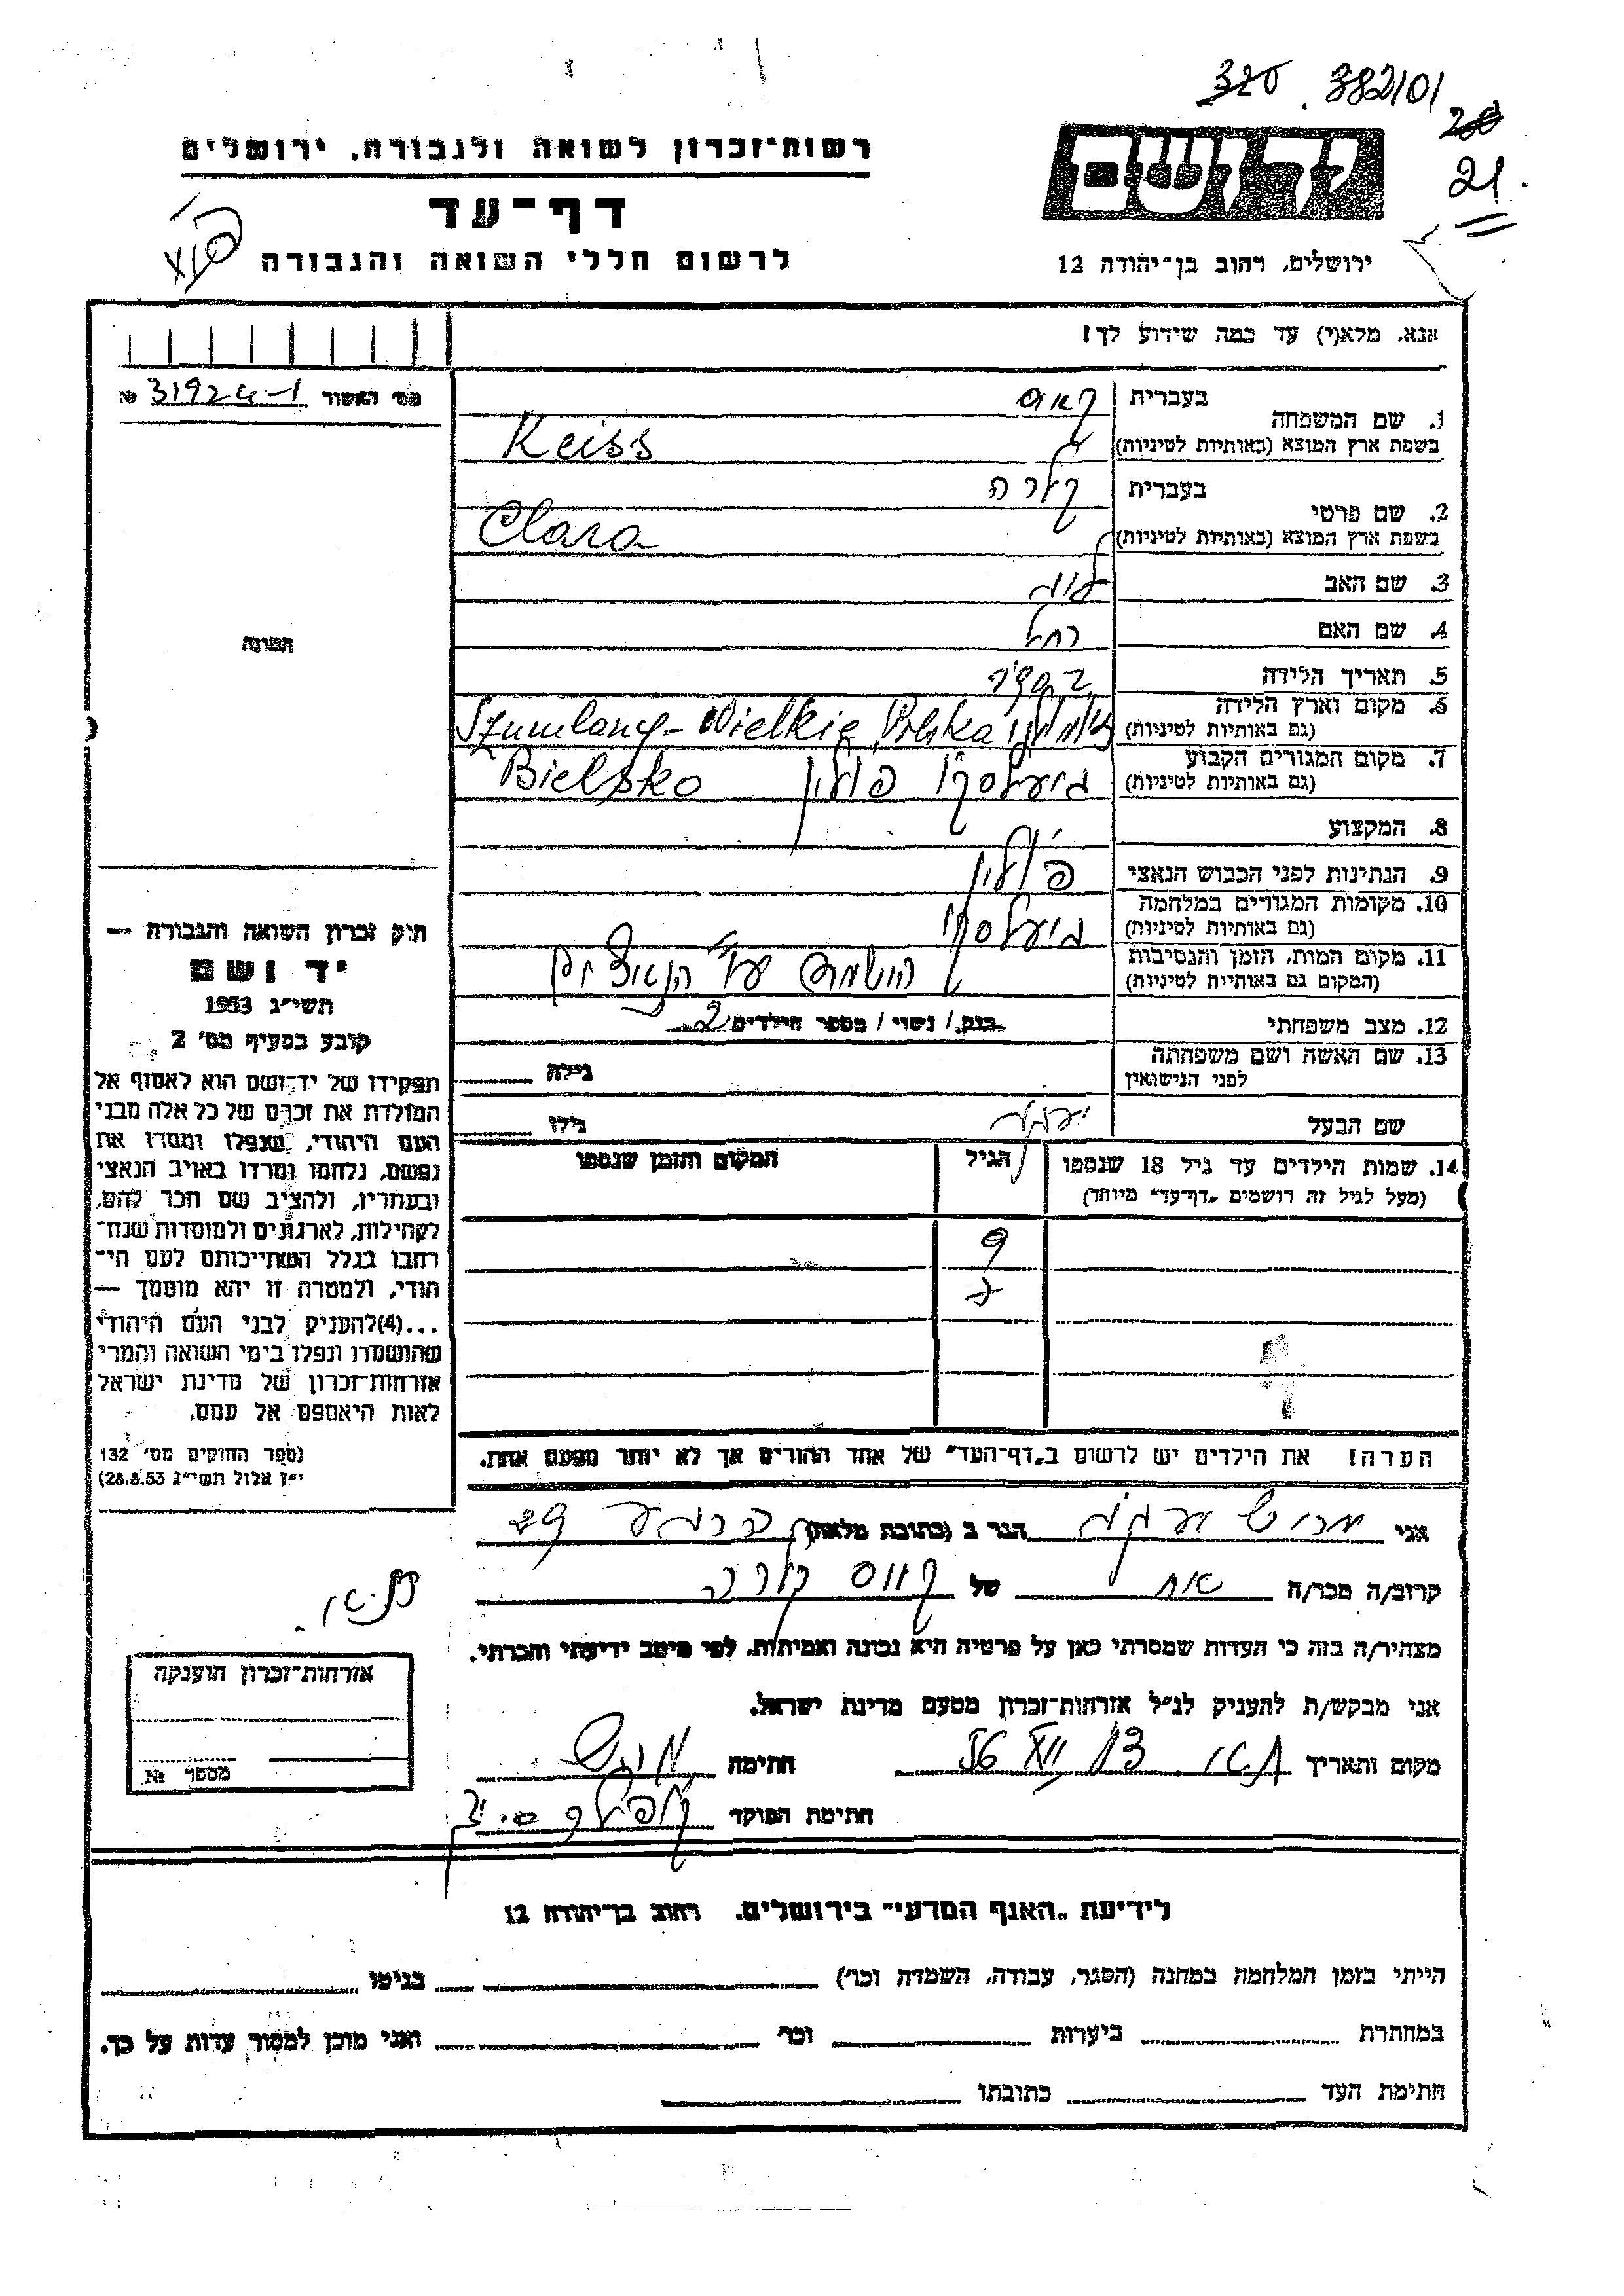 320 . 382/01
21.
רשות-זכרון לשואה ולגבורה, ירושלים
דף-עד
לרשום חללי השואה והגבורה
ירושלים, רחוב בן-יהודה 12
אנא, מלא(י) עד כמה שידוע לך!
מס' האשור 31924-1 №
1. שם המשפחה
בעברית
בשפת ארץ המוצא (באותיות לטיניות) Keiss
2. שם פרטי
בעברית קלרה
בשפת ארץ המוצא (באותיות לטיניות) Clara
3. שם האב
4. שם האם רחל
5. תאריך הלידה
6. מקום וארץ הלידה
(גם באותיות לטיניות) Szumlany-Wielkie, Polska
7. מקום המגורים הקבוע
(גם באותיות לטיניות) ביעלסקו פולין Bielsko
8. המקצוע
9. הנתינות לפני הכבוש הנאצי פולין
10. מקומות המגורים במלחמה
(גם באותיות לטיניות) ביעלסקו
11. מקום המות, הזמן והנסיבות
(המקום גם באותיות לטיניות) הושמדה ע"י הנאצים
12. מצב משפחתי רוק / נשוי / מספר הילדים 2
13. שם האשה ושם משפחתה
לפני הנישואין גילה
שם הבעל יעקב גילו
14. שמות הילדים עד גיל 18 שנספו
(מעל לגיל זה רושמים "דף-עד" מיוחד)
הגיל
המקום והזמן שנספו
9
7
הערה! את הילדים יש לרשום ב"דף-העד" של אחד ההורים אך לא יותר מפעם אחת.
תמונה
חוק זכרון השואה והגבורה —
יד ושם
תשי"ג 1953
קובע בסעיף מס' 2
תפקידו של יד-ושם הוא לאסוף אל
המולדת את זכרם של כל אלה מבני
העם היהודי, שנפלו ומסרו את
נפשם, נלחמו ומרדו באויב הנאצי
ובעוזריו, ולהציב שם וזכר להם,
לקהילות, לארגונים ולמוסדות שנח-
רבו בגלל השתייכותם לעם הי-
הודי, ולמטרה זו יהא מוסמך —
...(4)להעניק לבני העם היהודי
שהושמדו ונפלו בימי השואה והמרי
אזרחות-זכרון של מדינת ישראל
לאות היאספם אל עמם.
(ספר החוקים מס' 132
י"ז אלול תשי"ג 28.8.53)
אני יעקב הגר ב (כתובת מלאה) 29
קרוב/ה מכר/ה אח של קווס קלרה
מצהיר/ה בזה כי העדות שמסרתי כאן על פרטיה היא נכונה ואמיתית, לפי מיטב ידיעתי והכרתי.
אני מבקש/ת להעניק לנ"ל אזרחות-זכרון מטעם מדינת ישראל.
מקום ותאריך חתימה
חתימת הפוקד
אזרחות-זכרון הוענקה
מספר №
לידיעת "האגף המדעי" בירושלים, רחוב בן-יהודה 12
הייתי בזמן המלחמה במחנה (הסגר, עבודה, השמדה וכו') בגיטו
במחתרת ביערות וכו' ואני מוכן למסור עדות על כך.
חתימת העד כתובתו